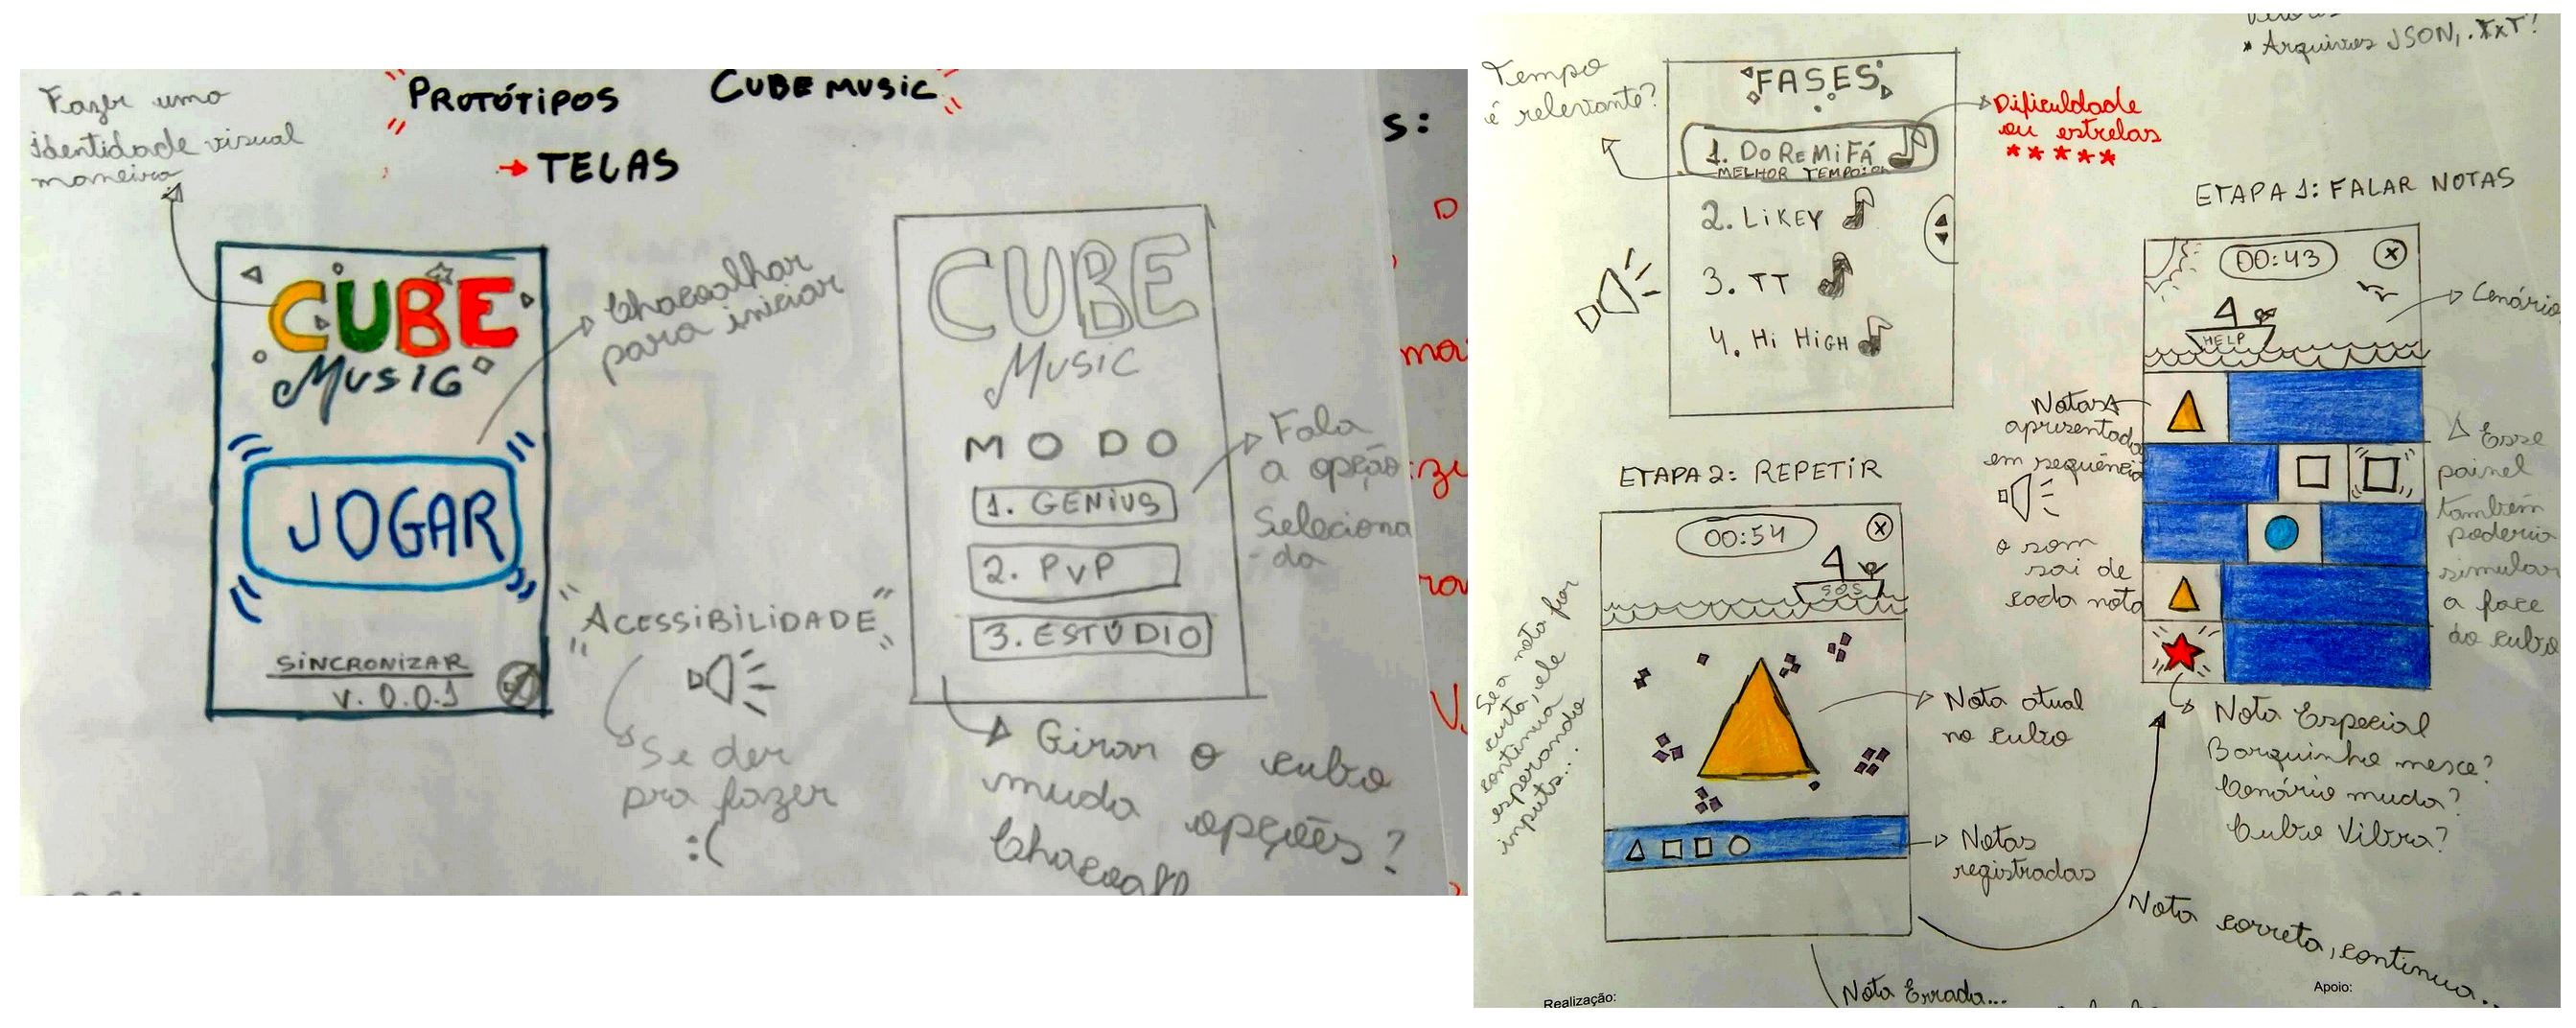 Fazer uma
identidade visual
maneira
PROTÓTIPOS CUBE MUSIC
→ TELAS
CUBE
MUSIC
JOGAR
SINCRONIZAR
V. 0.0.1
Chacoalhar
para iniciar
"ACESSIBILIDADE"
Se der
pra fazer
:(
CUBE
MUSIC
MODO
1. GENIUS
2. PvP
3. ESTÚDIO
Fala
a opção
Seleciona
-da
Girar o cubo
muda opções?
S:
Tempo
é relevante?
FASES
1. DoReMiFÁ
MELHOR TEMPO:
2. LiKEY
3. TT
4. Hi HiGH
Dificuldade
ou estrelas
*****
* Arquivos JSON, .TxT?
ETAPA 1: FALAR NOTAS
00:43
X
HELP
Cenário
Notas
apresentada
em sequência
o som
sai de
cada nota
Esse
painel
também
poderia
simular
a face
do cubo
Nota Especial
Barquinho mexe?
Cenário muda?
Cubo Vibra?
ETAPA 2: REPETIR
00:54
X
SOS
Se a nota for
curta, ele
continua
esperando
inputs...
Nota atual
no cubo
Notas
registradas
Nota correta, continua...
Nota Errada...
Realização:
Apoio: